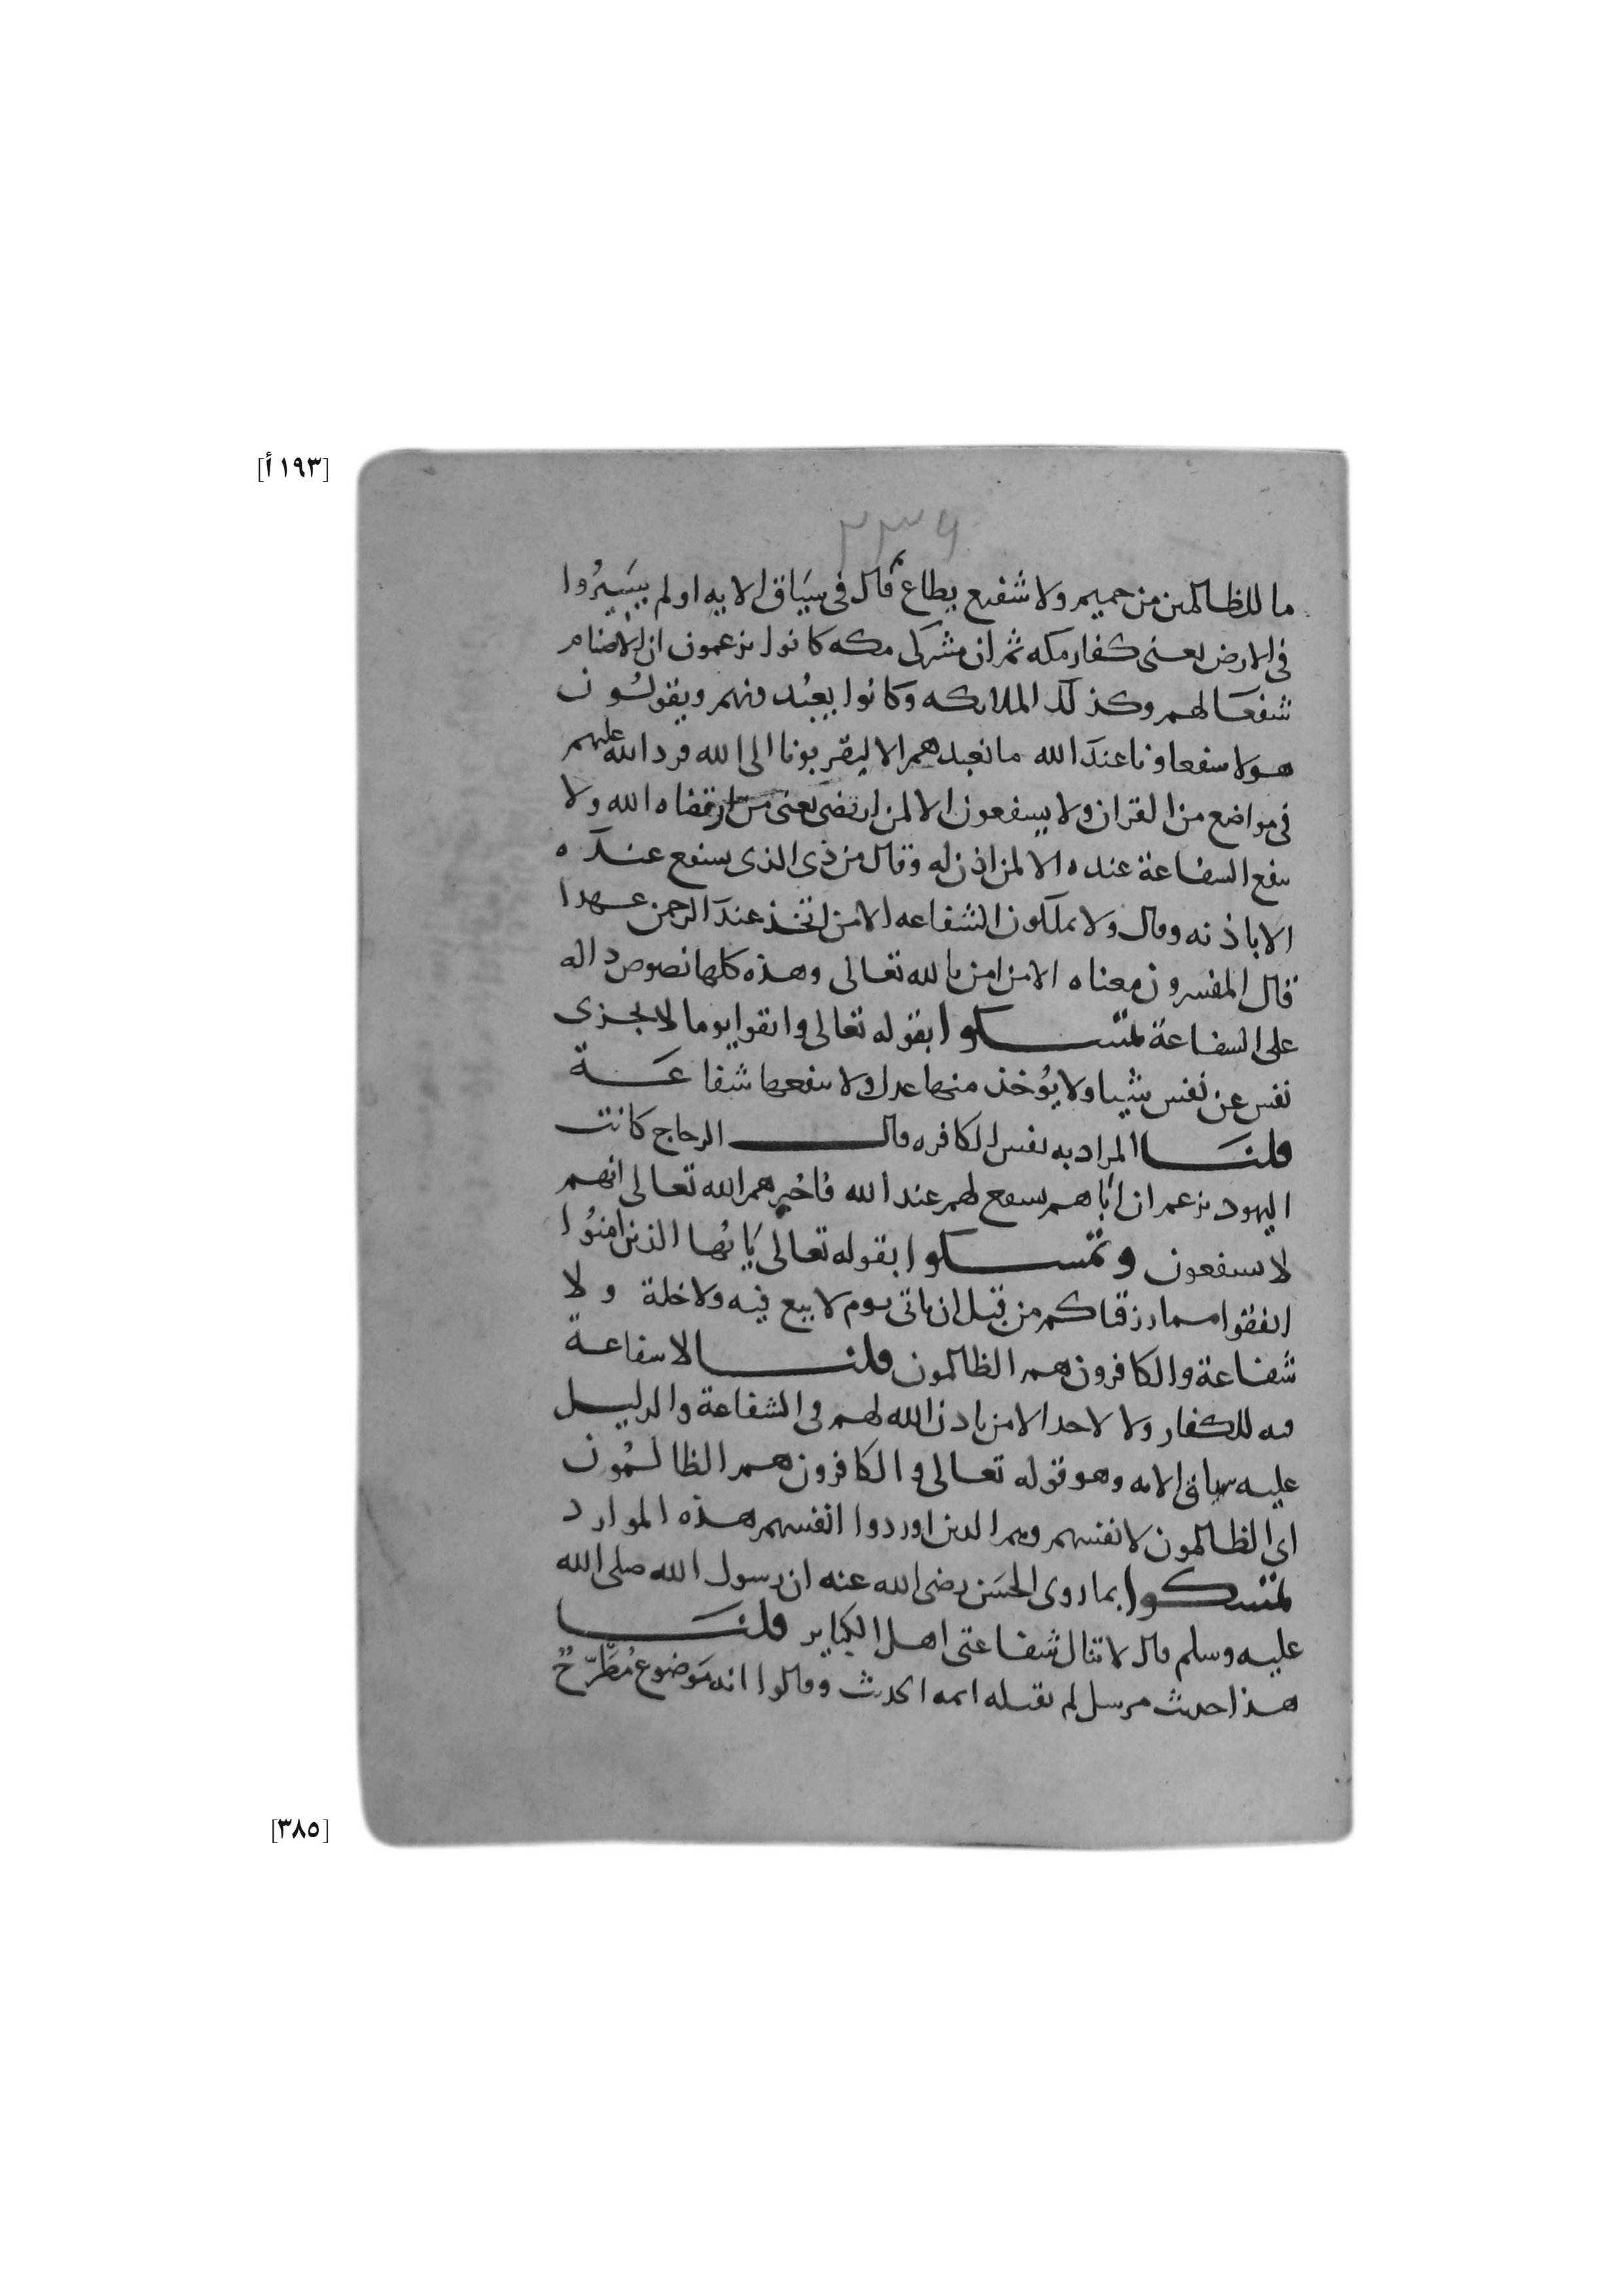 [١٩٣ أ]
٢٣٦
ما للظالمين من حميم ولا شفيع يطاع قال في سياق الايه اولم يسيروا
في الارض يعنى كفار مكه ثم ان مشركى مكه كانوا يزعمون ان الاصنام
شفعا لهم وكذلك الملايكه وكانوا يعبدونهم ويقولون
هولا شفعاونا عند الله ما نعبدهم الا ليقربونا الى الله فرد الله عليهم
في مواضع من القران ولا يشفعون الا لمن ارتضى يعنى من ارتضاه الله ولا
تنفع الشفاعة عنده الا لمن اذن له وقال من ذى الذى يشفع عنده
الا باذنه وقال ولا يملكون الشفاعه الا من اتخذ عند الرحمن عهدا
قال المفسرون معناه الا من امن بالله تعالى وهذه كلها نصوص داله
على الشفاعة تمسكوا بقوله تعالى واتقوا يوما لا تجزى
نفس عن نفس شيا ولا يوخذ منها عدل ولا تنفعها شفاعة
قلنا المراد به نفس الكافره قال الزجاج كانت
اليهود تزعم ان اباهم يشفع لهم عند الله فاخبرهم الله تعالى انهم
لا يشفعون وتمسكوا بقوله تعالى يايها الذين امنوا
انفقوا مما رزقناكم من قبل ان ياتى يوم لا بيع فيه ولا خلة ولا
شفاعة والكافرون هم الظالمون قلنا لا شفاعة
فيه للكفار ولا لاحد الا من ياذن الله لهم في الشفاعة والدليل
عليه سياق الايه وهو قوله تعالى والكافرون هم الظالمون
اى الظالمون لانفسهم وهم الذين اوردوا انفسهم هذه الموارد
تمسكوا بما روى الحسن رضى الله عنه ان رسول الله صلى الله
عليه وسلم قال لا تنال شفاعتى اهل الكباير قلنا
هذا حديث مرسل لم يقبله ايمه الحديث وقالوا انه موضوع مُطَّرَحٌ
[٣٨٥]